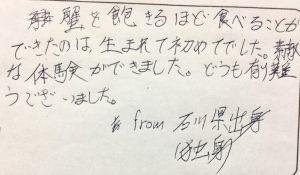 蟹を飽きるほど食べることが
できたのは、生まれて初めてでした。素敵
な体験ができました。どうも有難
うございました。
from 石川県出身
(独身)